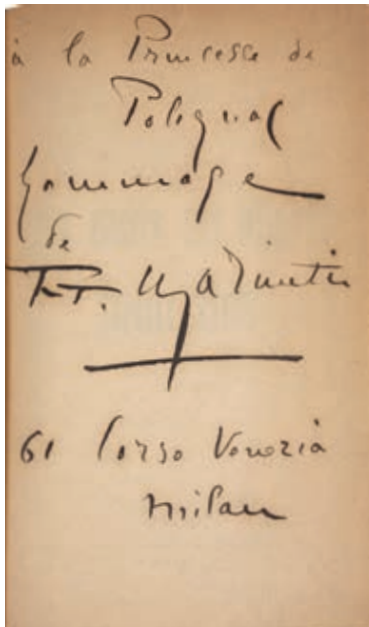 à la Princesse de
Polignac
hommage
de
F.T. Marinetti
61 Corso Venezia
Milan